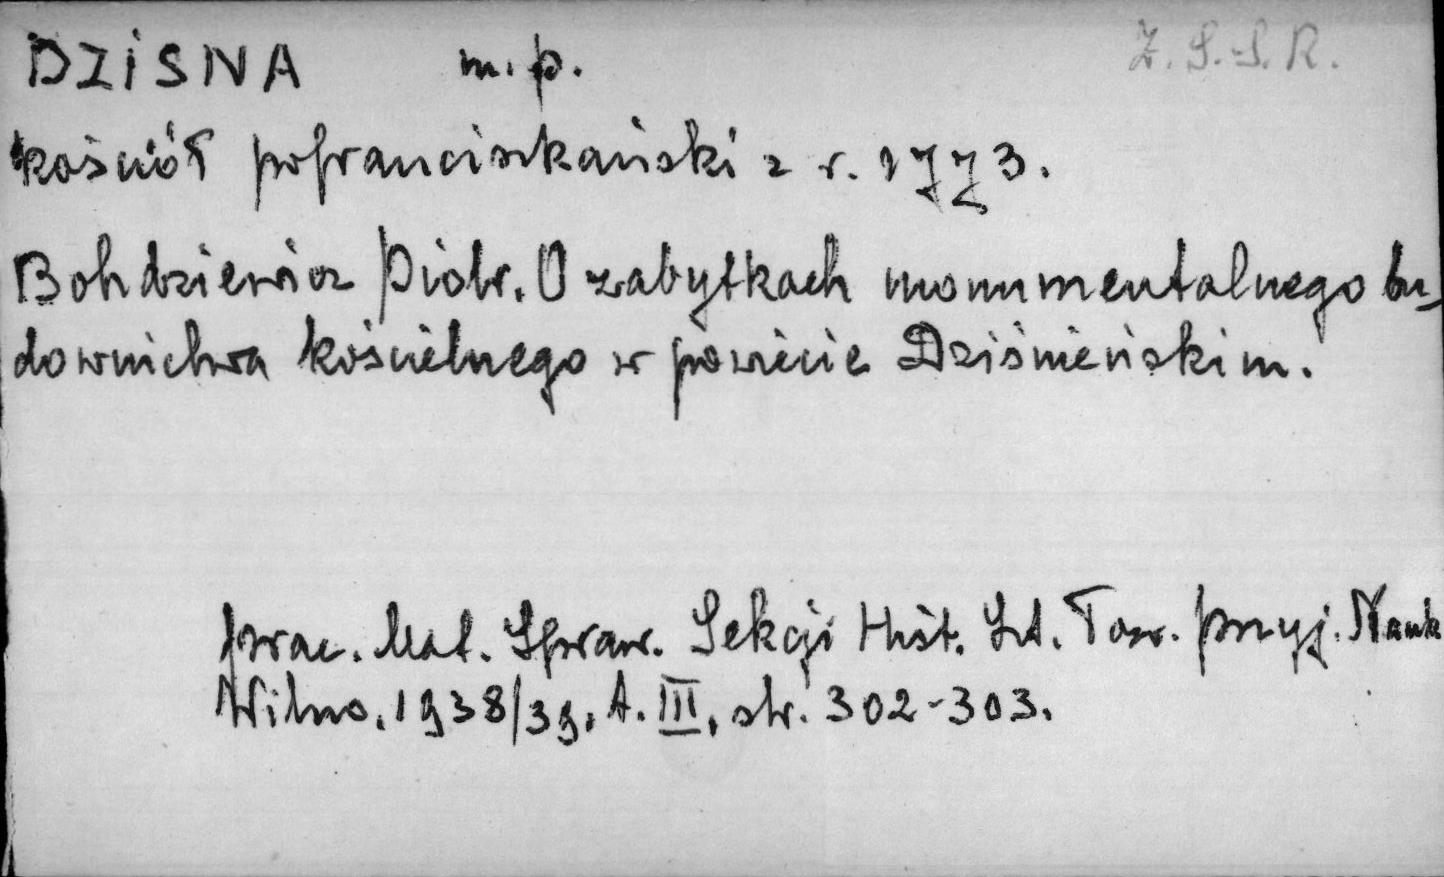 DZISNA m.p. Z.S.S.R.
kościół pofranciszkański z r. 1773.
Bohdziewicz Piotr. O zabytkach monumentalnego bu-
downictwa kościelnego w powiecie Dziśnieńskim.
Prac. Mat. Spraw. Sekcji Hist. Szt. Tow. Przyj. Nauk
Wilno. 1938/39. t. III, str. 302-303.